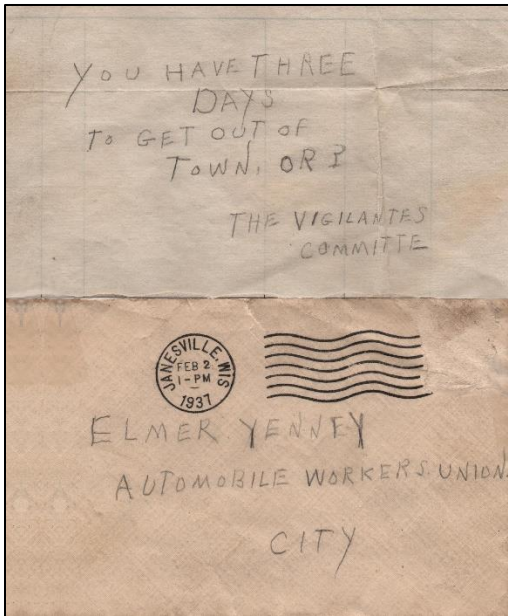 YOU HAVE THREE
DAYS
TO GET OUT OF
TOWN, OR ?
THE VIGILANTES
COMMITTE
JANESVILLE, WIS
FEB 2
1-PM
1937
ELMER YENNEY
AUTOMOBILE WORKERS. UNION.
CITY